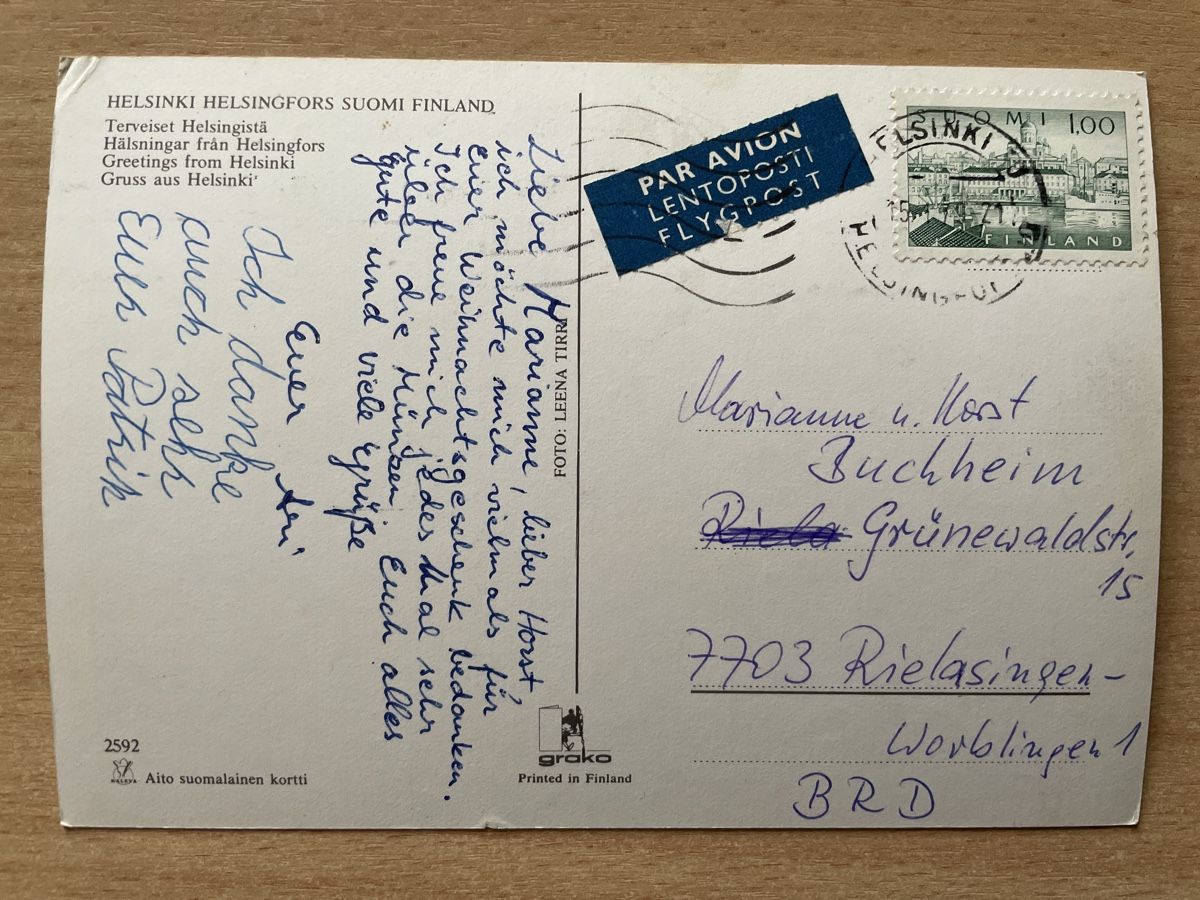 HELSINKI HELSINGFORS SUOMI FINLAND
Terveiset Helsingistä
Hälsningar från Helsingfors
Greetings from Helsinki
Gruss aus Helsinki
Liebe Marianne, lieber Horst
ich möchte mich vielmals für
euer Weihnachtsgeschenk bedanken.
Ich freue mich jedes Mal sehr
über die Münzen. Euch alles
gute und viele Grüße
Euer Ari
Ich danke
auch sehr
Euch Patrik
FOTO: LEENA TIRRI
2592
PALEVA
Aito suomalainen kortti
grako
Printed in Finland
PAR AVION
LENTOPOSTI
FLYGPOST
SUOMI 1,00
FINLAND
HELSINKI
HELSINGFORS
Marianne u. Horst
Buchheim
Riela Grünewaldstr.
15
7703 Rielasingen-
Worblingen 1
BRD